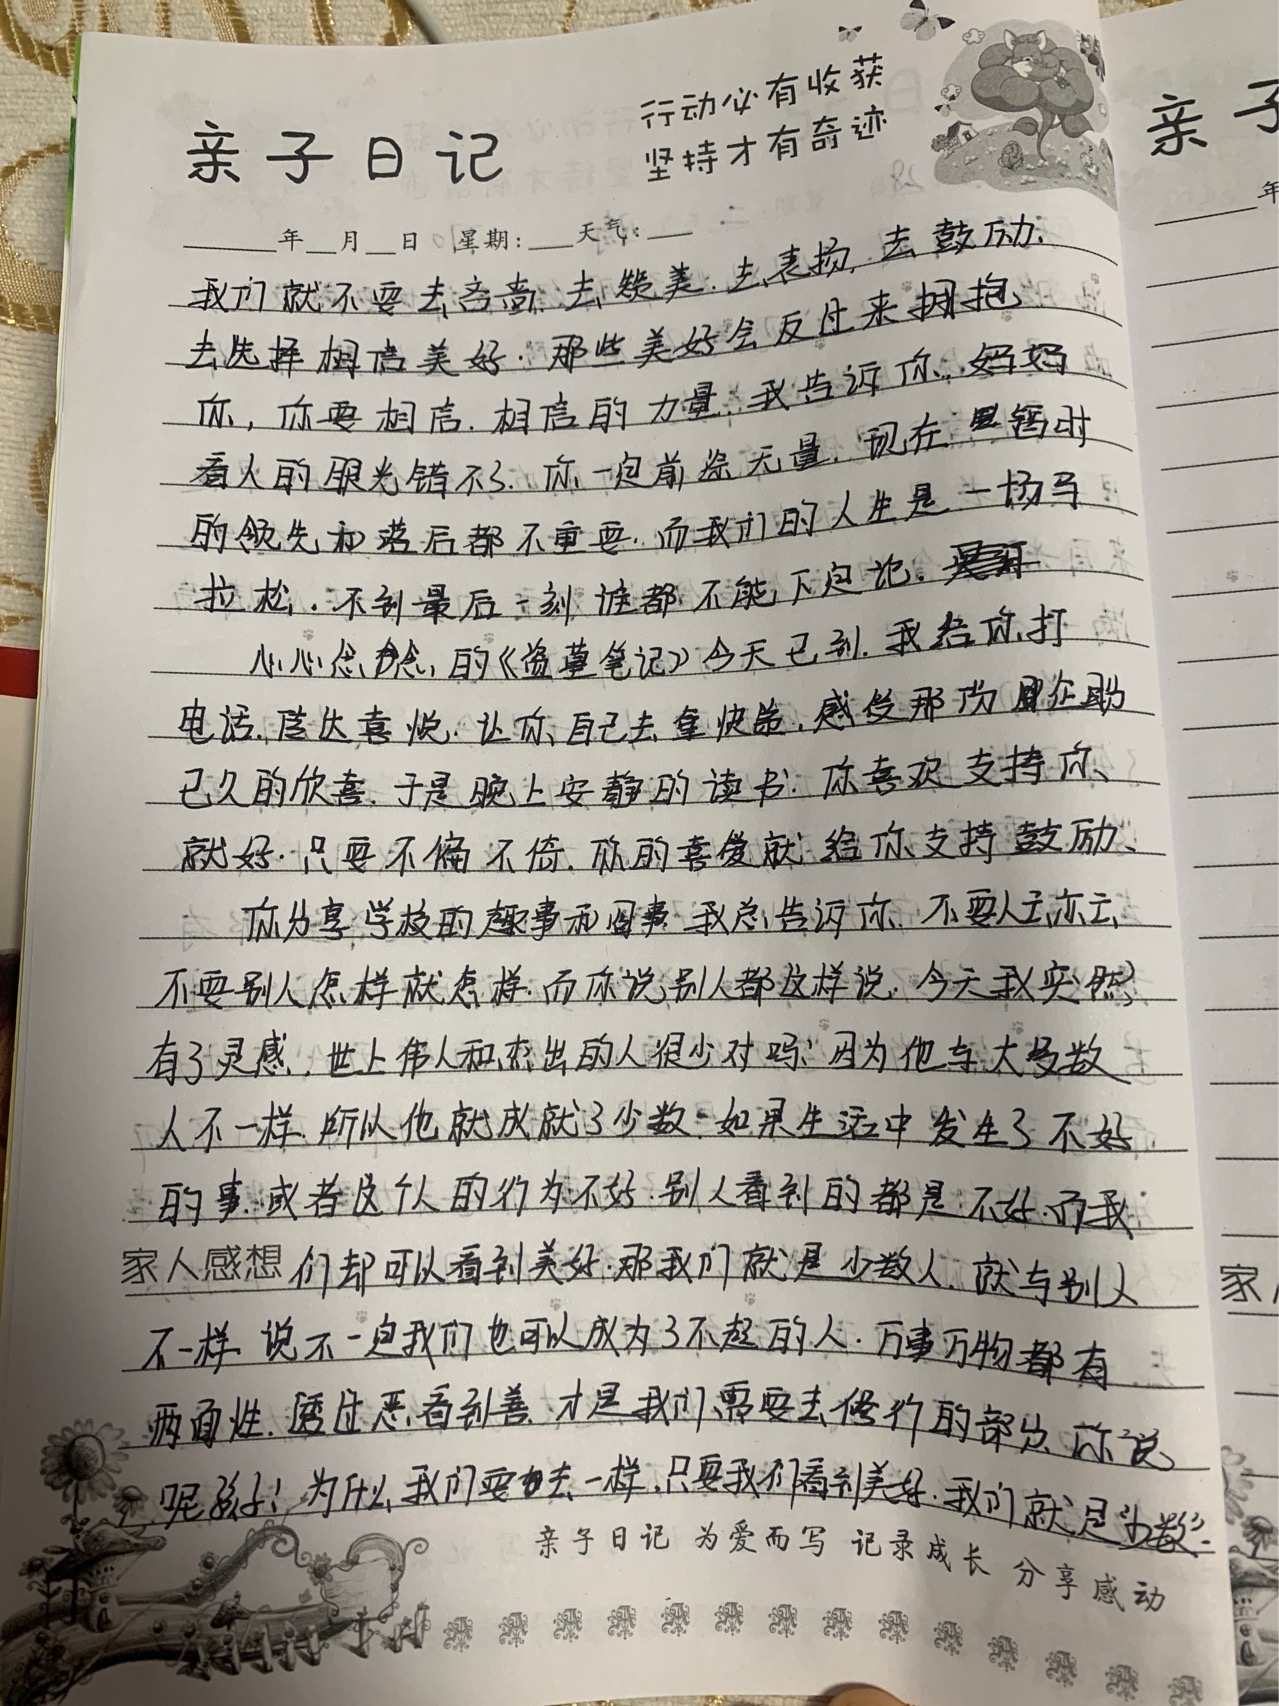 亲子日记
行动必有收获
坚持才有奇迹
年 月 日 星期: 天气:
我们就不要去吝啬.去赞美.去表扬.去鼓励.
去选择相信美好.那些美好会反过来拥抱
你,你要相信.相信的力量.我告诉你.妈妈
看人的眼光错不了.你一定前途无量.现在暂时
的领先和落后都不重要.而我们的人生是一场马
拉松.不到最后一刻谁都不能下定论.
心心念念的《盗墓笔记》今天已到.我给你打
电话.传达喜悦.让你自己去拿快递.感受那份
已久的欣喜.于是晚上安静的读书.你喜欢支持你、
就好.只要不偏不倚.你的喜爱就给你支持鼓励、
你分享学校的趣事和囧事.我总告诉你.不要人云亦云、
不要别人怎样就怎样.而你说别人都这样说.今天我突然
有了灵感.世上伟人和杰出的人很少对吗?因为他与大多数
人不一样.所以他就成就了少数.如果生活中发生了不好
的事.或者这个人的行为不好.别人看到的都是不好.而我
家人感想 们却可以看到美好.那我们就是少数人.就与别人
不一样.说不一定我们也可以成为了不起的人.万事万物都有
两面性.透过恶看到善.才是我们需要去修行的部分.你说
呢孩子!为什么我们要去一样.只要我们看到美好.我们就是"少数".
亲子日记 为爱而写 记录成长 分享感动
亲子
年
家人